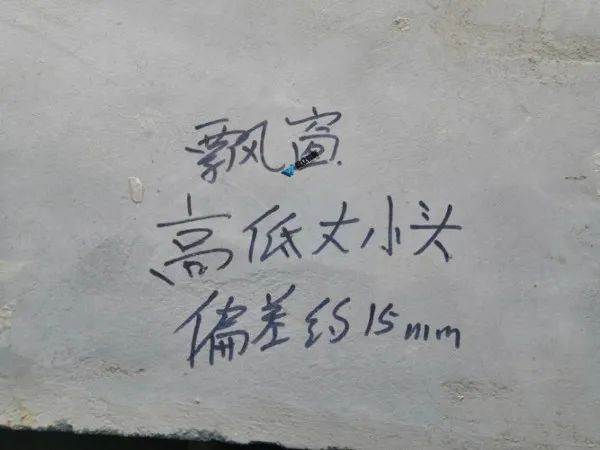 飘窗
高低大小头
偏差约15mm